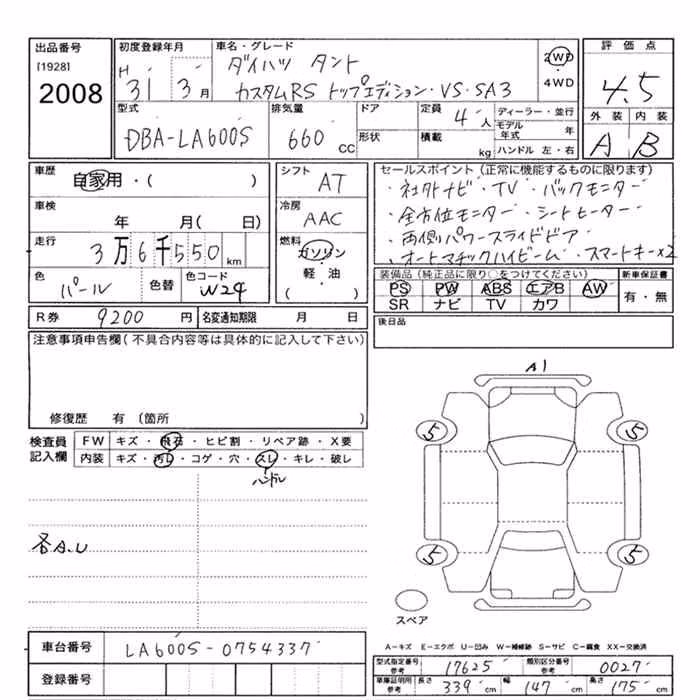 出品番号
[1928]
2008
初度登録年月
H 31 3 月
車名・グレード
ダイハツ タント
カスタムRS トップエディション・VS・SA3
2WD
・
4WD
評価点
4.5
外装 内装
A B
型式
DBA-LA600S
排気量
660 CC
ドア
形状
定員
4 人
積載
kg
ディーラー・並行
モデル年式 年
ハンドル 左・右
車歴
自家用・( )
車検
年 月( 日)
走行
3万6千550km
色
パール
色替
色コード
W24
シフト
AT
冷房
AAC
燃料
ガソリン
・
軽・油
( )
セールスポイント(正常に機能するものに限ります)
・社外ナビ・TV・バックモニター
・全方位モニター・シートヒーター
・両側パワースライドドア
・オートマチックハイビーム・スマートキー×2
装備品(純正品に限り○をつけてください)
PS PW ABS エアB AW
SR ナビ TV カワ
新車保証書
有・無
R券 9200 円
名変通知期限 月 日
後日品
注意事項申告欄(不具合内容等は具体的に記入して下さい)
修復歴 有(箇所 )
検査員
記入欄
FW キズ・飛石・ヒビ割・リペア跡・X要
内装 キズ・汚レ・コゲ・穴・スレ・キレ・破レ
ハンドル
各A.U
A1
5 5
5 5
スペア
車台番号
LA600S-0754337
登録番号
A-キズ E-エクボ U-凹み W-補修跡 S-サビ C-腐食 XX-交換済
型式指定番号 参考 17625
類別区分番号 参考 0027
車庫証明用 参考
長さ 339 cm
幅 147 cm
高さ 175 cm